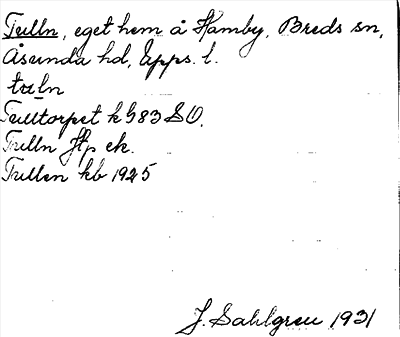 Tulln, eget hem å Hamby, Breds sn,
Åsunda hd, Upps. l.
tuln
Tulltorpet k 583 SO.
Tulln ftp ek.
Tullen kb 1925
J. Sahlgren 1931